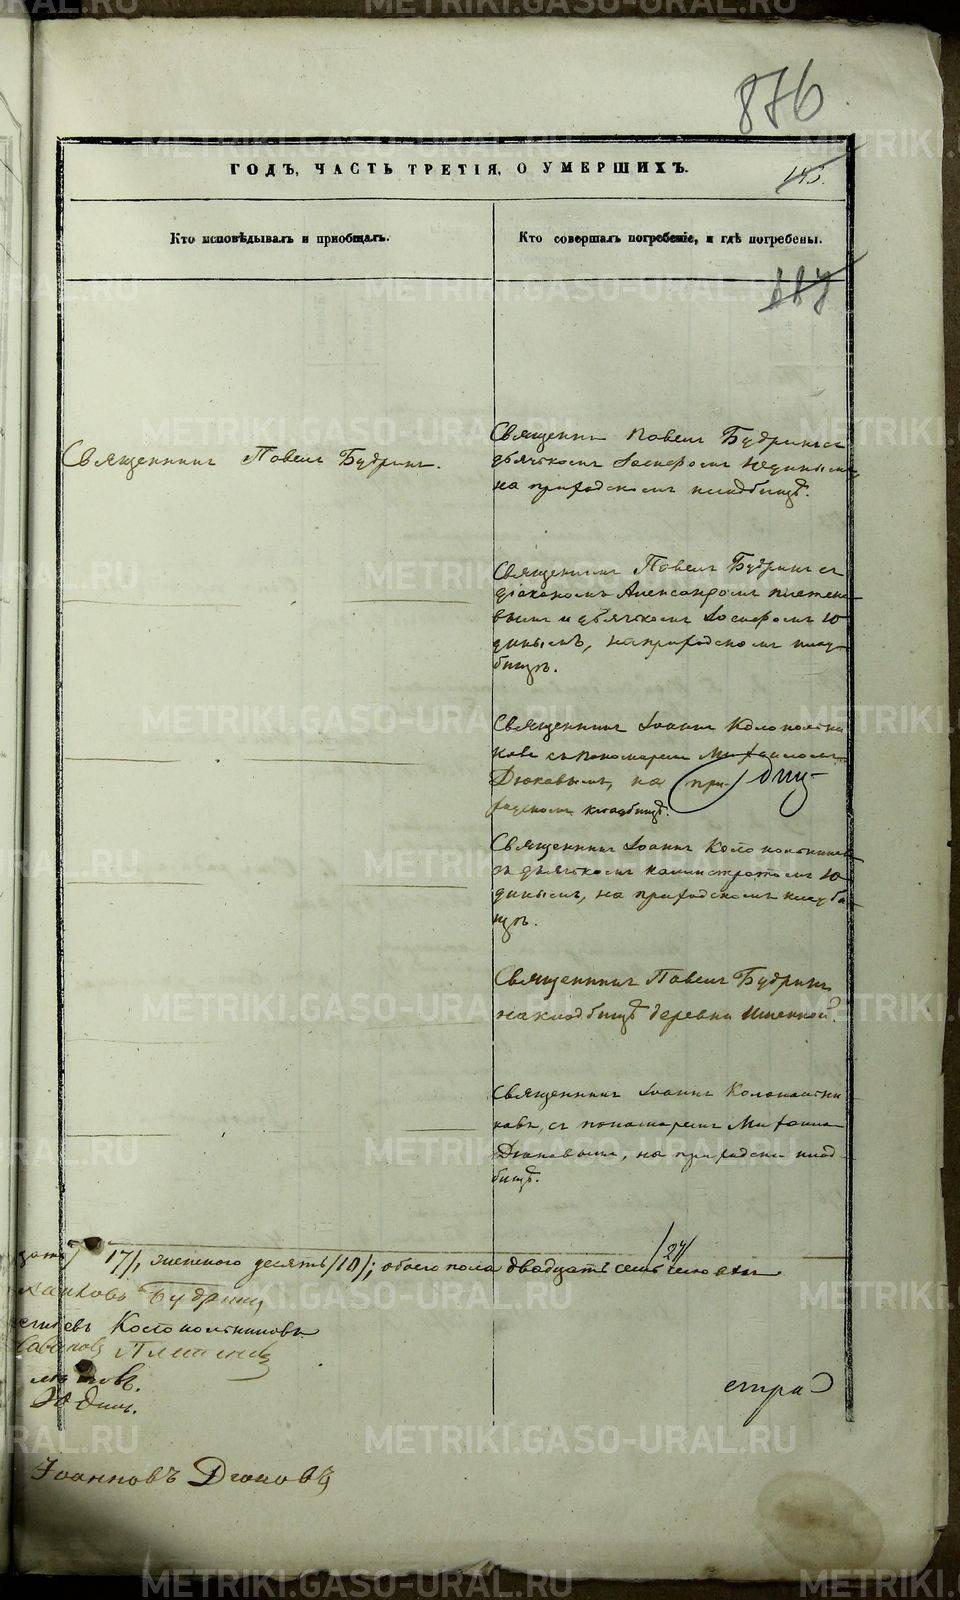 876
ГОДЪ, ЧАСТЬ ТРЕТІЯ, О УМЕРШИХЪ.
Кто исповѣдывалъ и пріобщалъ.
Кто совершалъ погребеніе, и гдѣ погребены.
Священникъ Павелъ Будринъ.
Священникъ Павелъ Будринъ съ
дьячкомъ Іосифомъ Юдинымъ
на приходскомъ кладбищѣ.
Священникъ Павелъ Будринъ съ
діакономъ Александромъ Плетене
вымъ и дьячкомъ Іосифомъ Ю
динымъ, на приходскомъ клад-
бищѣ.
Священникъ Іоаннъ Колокольни
ковъ съ пономаремъ Михаиломъ
Дюковымъ, на при-
ходскомъ кладбищѣ.
Священникъ Іоаннъ Колокольников
съ дьячкомъ Каллистратомъ Ю
динымъ, на приходскомъ кладби
щѣ.
Священникъ Павелъ Будринъ,
на кладбищѣ деревни
Священникъ Іоаннъ Колокольни
ковъ, съ пономаремъ Михаила
Дюковымъ, на приходско клад-
бищѣ.
/17/, женскаго десять /10/; обоего пола двадцать семь /27/ человѣкъ
Будринъ
Колокольниковъ
Плетеневъ
Юдинъ.
Іоанновъ Дюковъ
METRIKI.GASO-URAL.RU